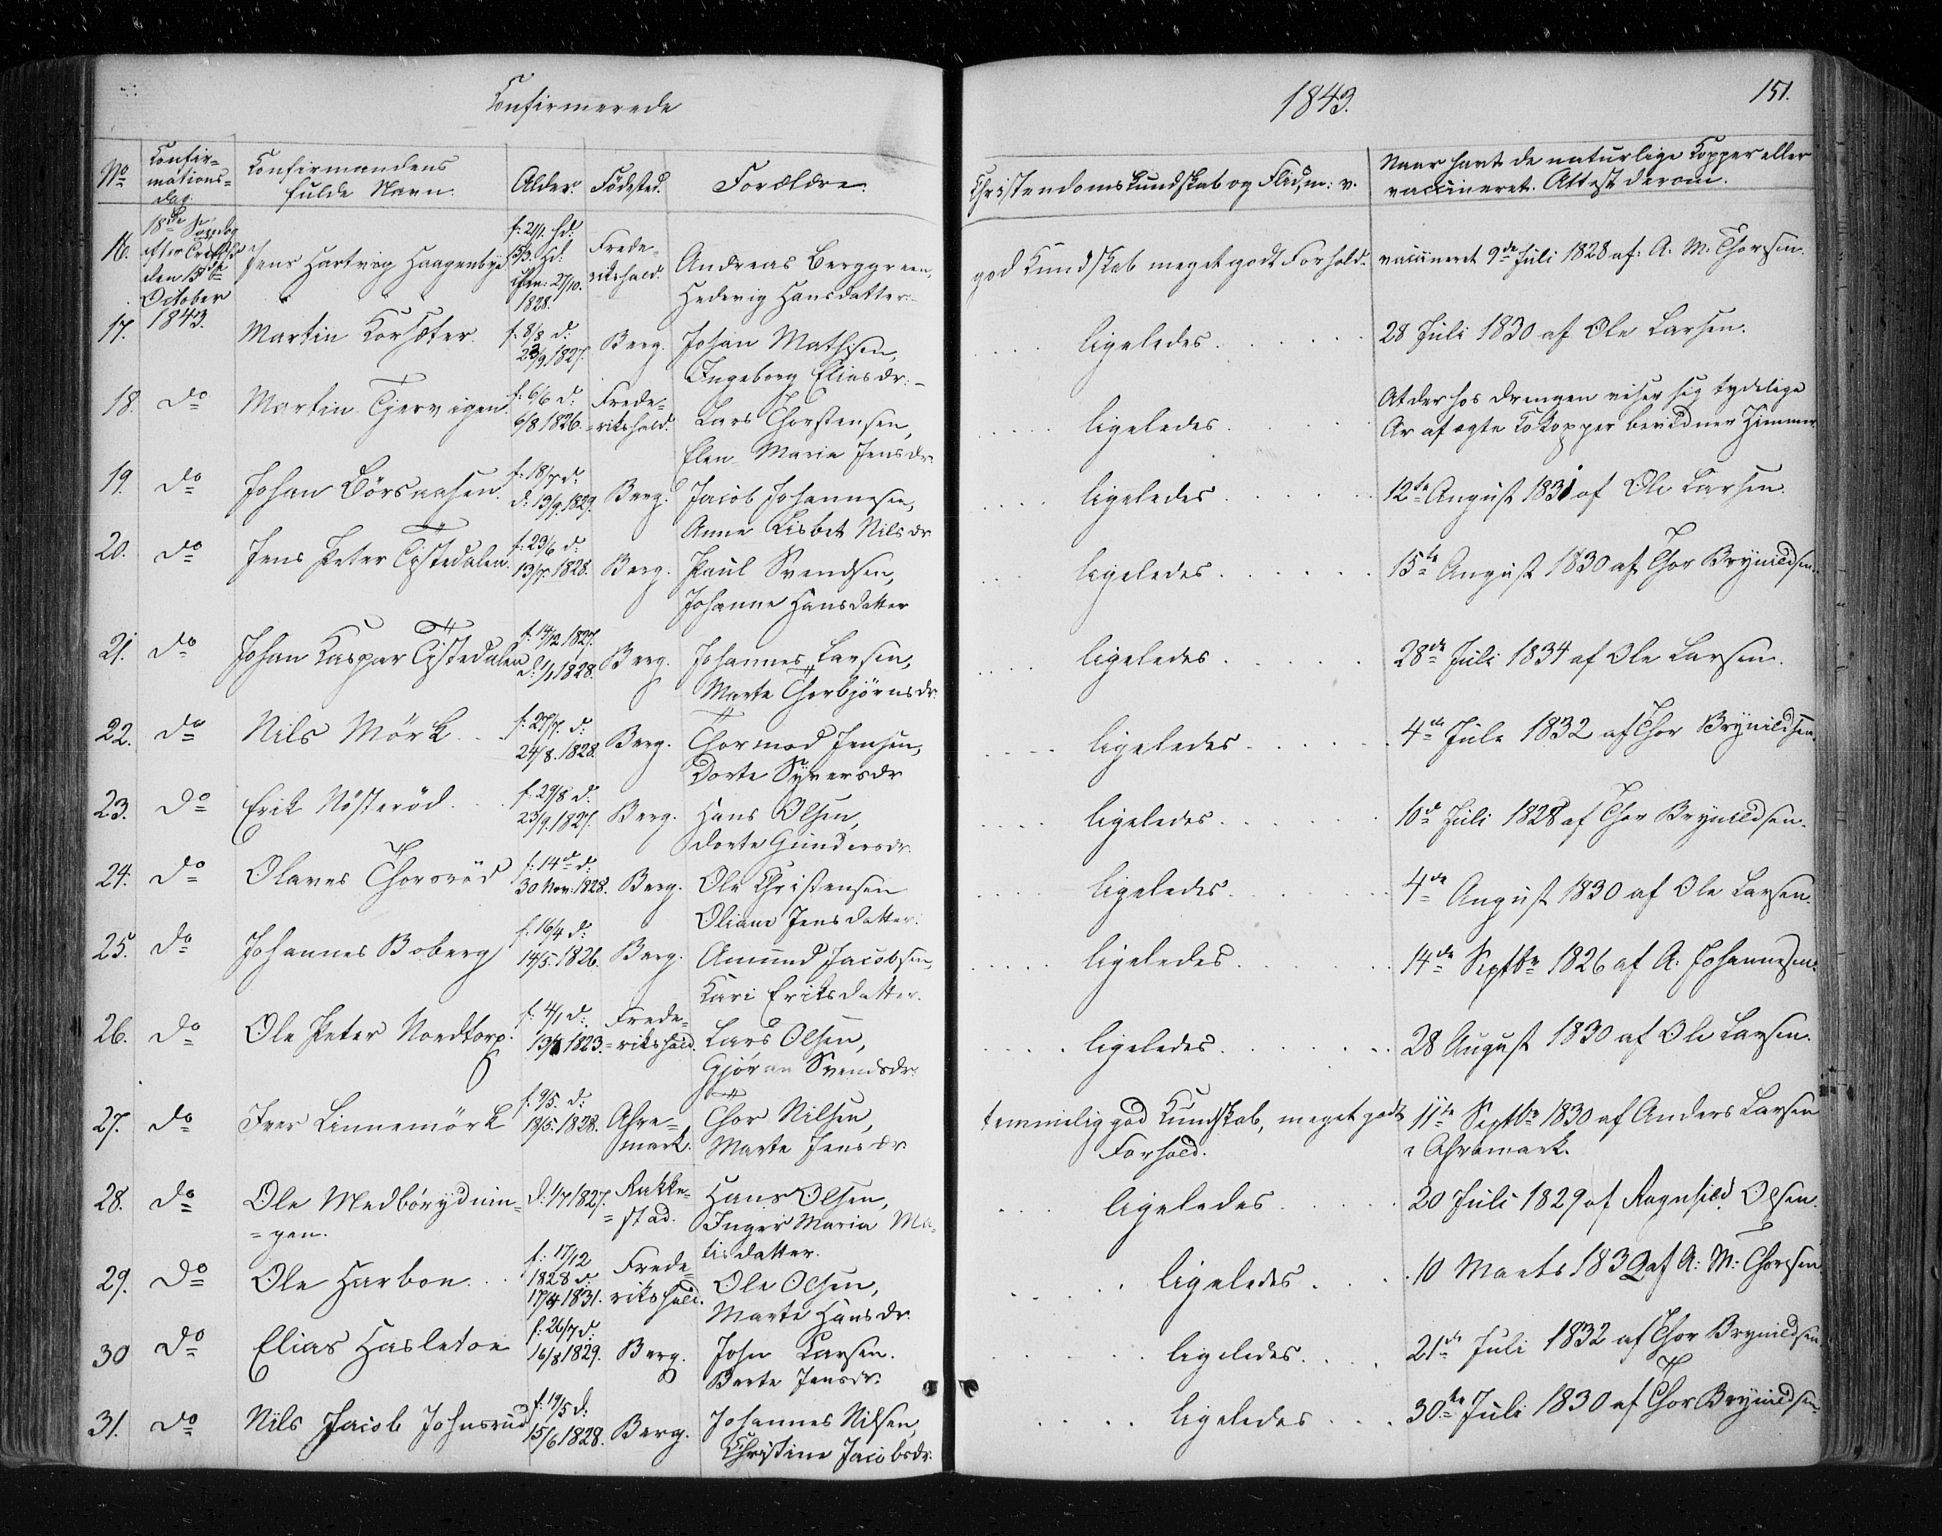 Confirmerede
1843.
151.
No
Confir=
mations=
dag.
Confirmandens
fulde Navn.
Alder.
Fødested.
Forældre.
Christendomskundskab og Flid, m: v.
Naar havt de naturlige Kopper eller
vaccineret. Attest derom.
16.
18de Søndag
efter
den 15de
October
1843.
Jens Hartvig Haagenbye
f: 2/1. hd:
13/3. Kd:
27/10.
1828.
Frede=
rikshald.
Andreas Berggreen,
Hedevig Hansdatter.
god Kundskab meget godt Forhold.
vaccineret 9de Juli 1828 af: A. M. Thorsen.
17.
Martin Korsæter.
f: 8/8 d:
23/9 1827.
Berg.
Johan Mathisen,
Ingeborg Eliasdr.
ligeledes.
28 Juli 1830 af Ole Larsen.
18. do
Martin Tjervigen.
f: 6/6 d:
6/8 1826.
Frede=
=rikshald.
Lars Thorstensen,
Elen Maria Jensdr.
ligeledes.
At der hos Drengen viser sig tydelige
Ar af ægte Kokopper bevidner Zimmer
19. do
Johan Börsaasen.
f: 18/7 d:
d: 13/9. 1829.
Berg.
Jacob Johannesen,
Anne Lisbet Nilsdr
ligeledes
12te August 1831 af Ole Larsen.
20. do
Jens Peter Tistedalen.
f: 23/6 d:
13/7. 1828.
Berg.
Paul Svendsen,
Johanne Hansdatter
ligeledes
15te August 1830 af Thor Brynildsen.
21. do
Johan Kasper Tistedalen
f: 14/12 1827.
d: 1/1 1828.
Berg.
Johannes Larsen,
Marte Thorbjørnsdr.
ligeledes
28de Juli 1834 af Ole Larsen.
22. do
Nils Mörk
f: 27/7. d:
24/8. 1828.
Berg.
Thormod Jensen,
Dorte Syversdr
ligeledes
4de Juli 1832 af Thor Brynildsen.
23. do
Erik Nösteröd.
f: 29/8 d:
23/9. 1827.
Berg.
Hans Olsen,
Dorte Gundersdr.
ligeledes
10de Juli 1828 af Thor Brynildsen.
24. do
Olaves Thorsröd
f: 14de d:
30 Nov: 1828.
Berg.
Ole Christensen
Oliane Jensdatter.
ligeledes
4de August 1830 af Ole Larsen.
25. do
Johannes Boberg
f: 16/4 d:
14/5. 1826.
Berg.
Amund Jacobsen,
Kari Eriksdatter.
ligeledes
14de Septbr 1826 af A: Johannesen.
26. do
Ole Peter Nordtorp.
f: 4/1 d:
13/4 1823.
Frede=
=rikshald.
Lars Olsen,
Gjøran Svendsdr.
ligeledes
28 August 1830 af Ole Larsen.
27. do
Iver Linnemörk
f: 9/5. d:
18/5. 1828.
Ahre=
mark.
Thor Nilsen,
Marte Jensdr
temmelig god Kundskab, meget godt
Forhold.
11te Septbr 1830 af Anders Larsen
i Ahremark.
28. do
Ole Medbörydnin=
=gen.
d: 1/7 1827.
Rakke=
=stad.
Hans Olsen,
Inger Maria Ma=
tisdatter.
ligeledes
20 Juli 1829 af Ragnhild Olsen.
29. do
Ole Harbon
f: 17/12
1828 d:
17/4 1831.
Frede=
rikshald.
Ole Olsen,
Marte Hansdr.
ligeledes
10 Marts 1832 af A: M: Thorsen.
30 do
Elias Hasletoe
f: 26/7 d:
16/8 1829.
Berg.
John Larsen.
Berte Jensdr.
ligeledes
21de Juli 1832 af Thor Brynildsen.
31. do
Nils Jacob Johnsrud
f: 19/5 d:
15/6 1828.
Berg.
Johannes Nilsen,
Christine Jacobsdr.
ligeledes
30te Juli 1830 af Thor Brynildsen.